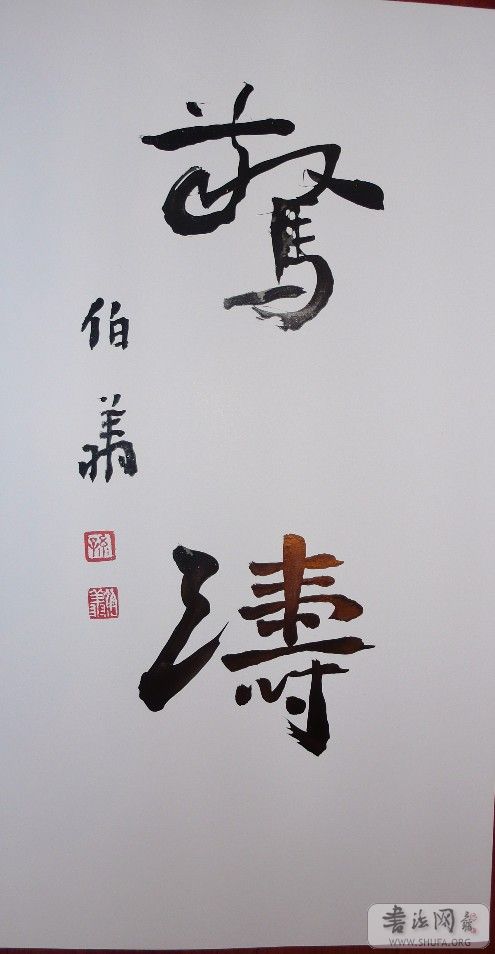 驚濤
伯翔
書法网
WWW.SHUFA.ORG